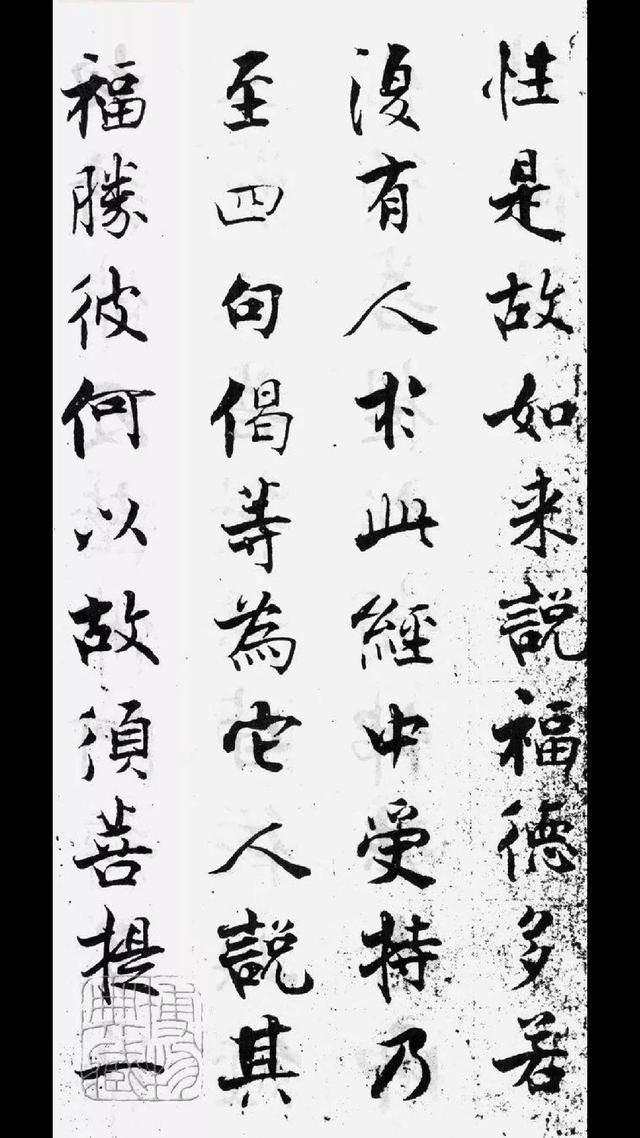 性是故如来説福德多若
復有人於此經中受持乃
至四句偈等為它人說其
福勝彼何以故須菩提一
博物
典藏